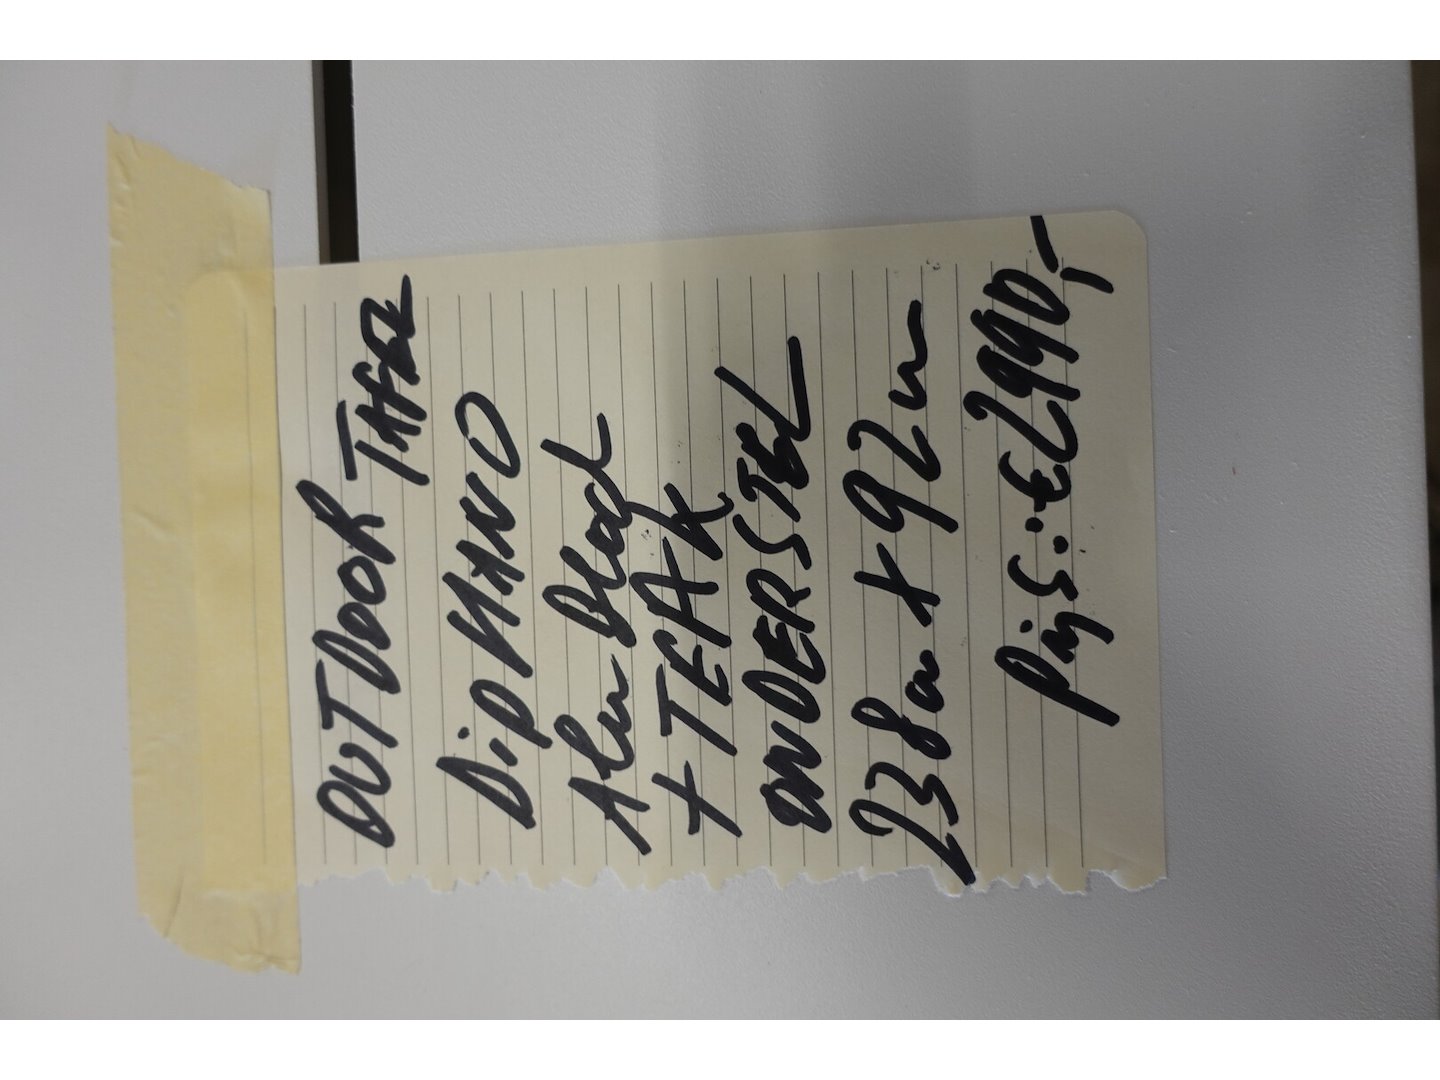 OUTDOOR TAFEL
DiPHANO
Alu Blad
+ TEAK
ONDERSTEL
238cm x 92cm
PRijS: € 2990,-